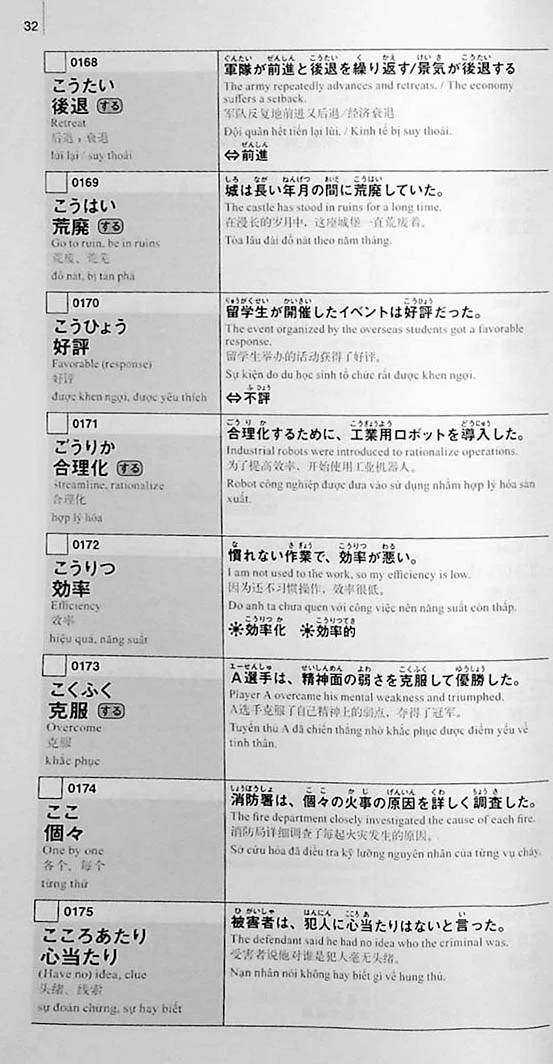 32
0168
こうたい
後退 する
Retreat
后退，衰退
lùi lại / suy thoái
ぐんたい ぜんしん こうたい く かえ けいき こうたい
軍隊が前進と後退を繰り返す/景気が後退する
The army repeatedly advances and retreats. / The economy
suffers a setback.
军队反复地前进又后退/经济衰退
Đội quân hết tiến lại lùi. / Kinh tế bị suy thoái.
ぜんしん
⇔前進
0169
こうはい
荒廃 する
Go to ruin, be in ruins
荒废、荒芜
đổ nát, bị tàn phá
しろ なが ねんげつ あいだ こうはい
城は長い年月の間に荒廃していた。
The castle has stood in ruins for a long time.
在漫长的岁月中，这座城堡一直荒废着。
Tòa lâu đài đổ nát theo năm tháng.
0170
こうひょう
好評
Favorable (response)
好评
được khen ngợi, được yêu thích
りゅうがくせい かいさい こうひょう
留学生が開催したイベントは好評だった。
The event organized by the overseas students got a favorable
response.
留学生举办的活动获得了好评。
Sự kiện do du học sinh tổ chức rất được khen ngợi.
ふひょう
⇔不評
0171
ごうりか
合理化 する
streamline, rationalize
合理化
hợp lý hóa
ごうりか こうぎょうよう どうにゅう
合理化するために、工業用ロボットを導入した。
Industrial robots were introduced to rationalize operations.
为了提高效率，开始使用工业机器人。
Robot công nghiệp được đưa vào sử dụng nhằm hợp lý hóa sản
xuất.
0172
こうりつ
効率
Efficiency
效率
hiệu quả, năng suất
な さぎょう こうりつ わる
慣れない作業で、効率が悪い。
I am not used to the work, so my efficiency is low.
因为还不习惯操作，效率很低。
Do anh ta chưa quen với công việc nên năng suất còn thấp.
こうりつか こうりつてき
※効率化 ※効率的
0173
こくふく
克服 する
Overcome
克服
khắc phục
エーせんしゅ せいしんめん よわ こくふく ゆうしょう
A選手は、精神面の弱さを克服して優勝した。
Player A overcame his mental weakness and triumphed.
A选手克服了自己精神上的弱点，夺得了冠军。
Tuyển thủ A đã chiến thắng nhờ khắc phục được điểm yếu về
tinh thần.
0174
ここ
個々
One by one
各个，每个
từng thứ
しょうぼうしょ ここ かじ げんいん くわ ちょうさ
消防署は、個々の火事の原因を詳しく調査した。
The fire department closely investigated the cause of each fire.
消防局详细调查了每起火灾发生的原因。
Sở cứu hỏa đã điều tra kỹ lưỡng nguyên nhân của từng vụ cháy.
0175
こころあたり
心当たり
(Have no) idea, clue
头绪、线索
sự đoán chừng, sự hay biết
ひがいしゃ はんにん こころあ い
被害者は、犯人に心当たりはないと言った。
The defendant said he had no idea who the criminal was.
受害者说他对谁是犯人毫无头绪。
Nạn nhân nói không hay biết gì về hung thủ.